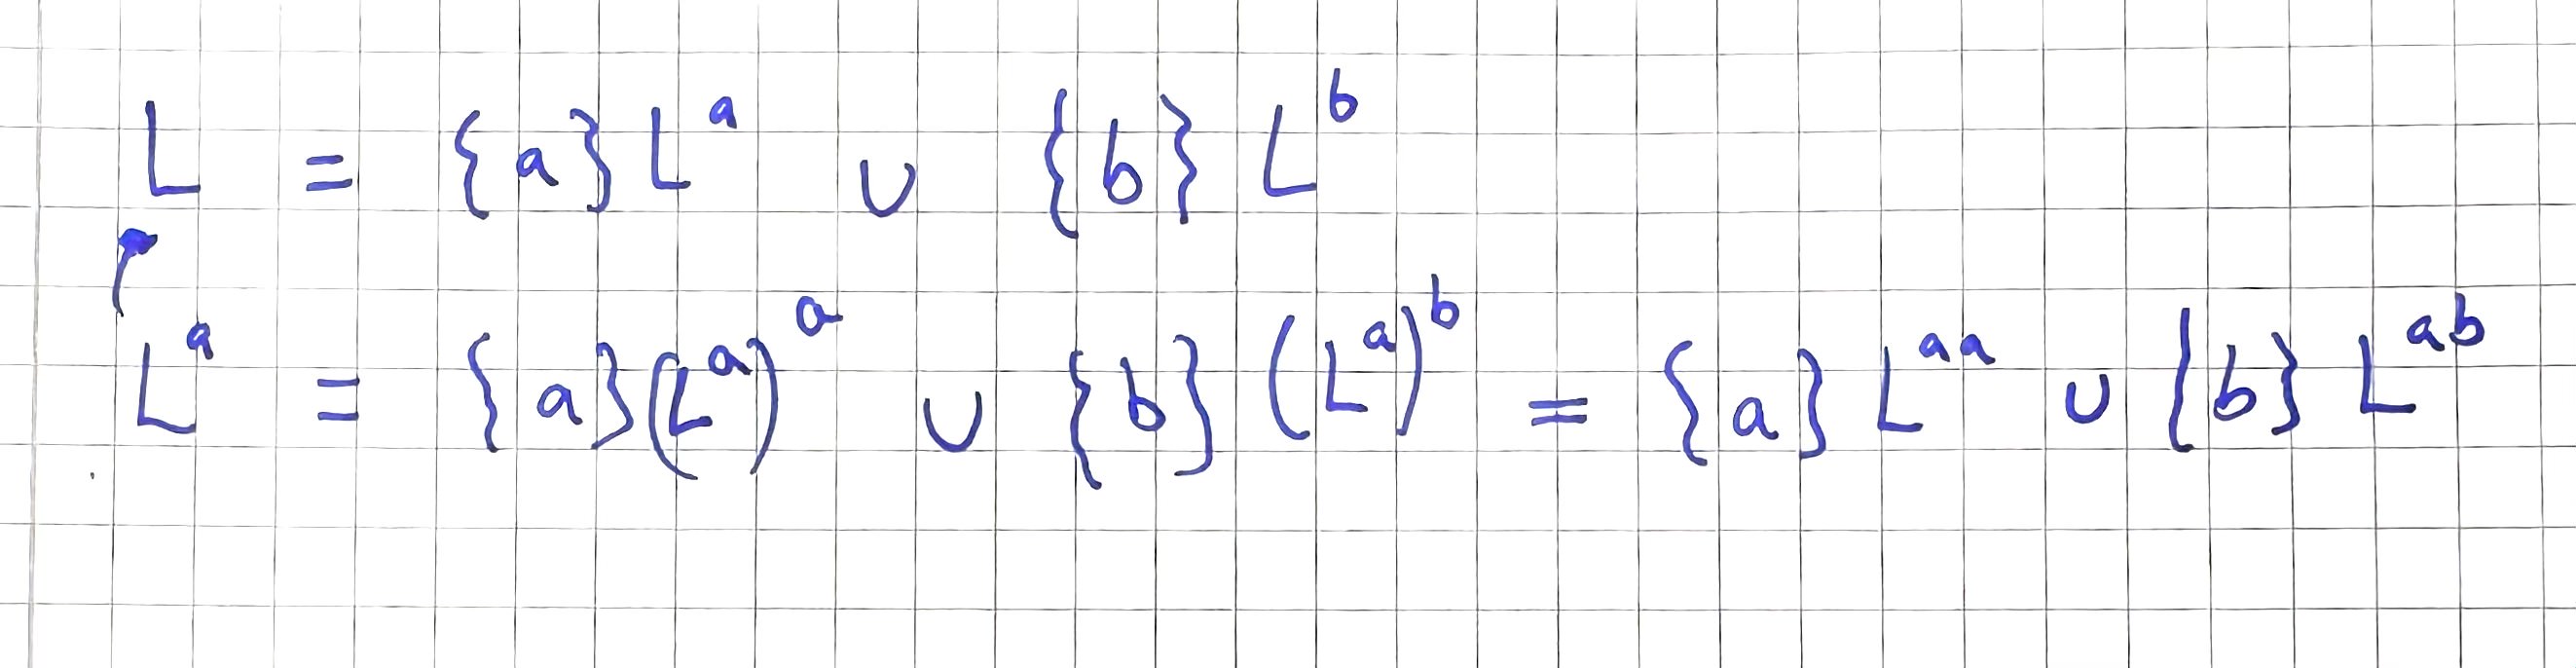 L = {a} Lᵃ ∪ {b} Lᵇ
Lᵃ = {a}(Lᵃ)ᵃ ∪ {b}(Lᵃ)ᵇ = {a} Lᵃᵃ ∪ {b} Lᵃᵇ